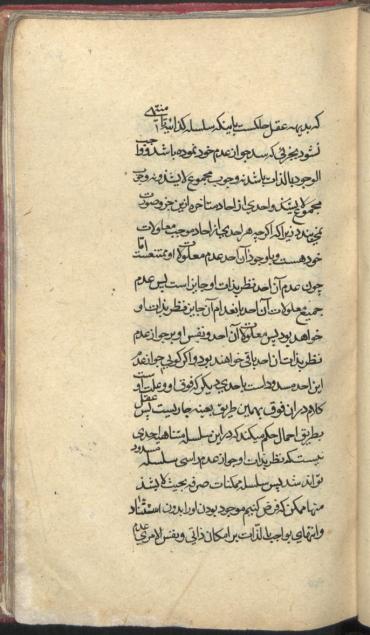 که بدیهه عقل حاکمست باینکه سلسله کذائیه تا منتهی
نشود بجزئی که سد جواز عدم خود نموده باشد و واجب
الوجود بالذات باشد نه وجوب مجموع لا بشذ و نه وجوب
مجموع لا بشذ واحدی از احاد متاخره از این جزو صورت
نمی بندد زیرا که اگر چه هر احدی از احاد موجب معلولات
خود هست و با وجود آن احد عدم معلولات او ممتنعست اما
چون عدم آن احد نظر بذات او جایز است پس عدم
جمیع معلولات آن احد با نعدام آن جایز نظر بذات او
خواهد بود پس معلولات آن احد و نفس او بر جواز عدم
نظر بذات آن احد باقی خواهند بود و اگر گوئی جواز عدم
این احد مسدود است باحدی دیگر که فوق او و علت اوست
کلام در آن فوق بهمین طریق بعینه جاریست پس عقل
بطریق اجمال حکم میکند که در این سلسله متناهیه احدی
نیست که نظر بذات او جواز عدم راسی سلسله مسدود
تواند شد پس سلسله ممکنات صرفه بحیث لا بشذ
منها ممکن که فرض کنیم موجود بودن او را بدون استناد
و انتهای بواجب بالذات بر امکان ذاتی و نفس الامری عدم